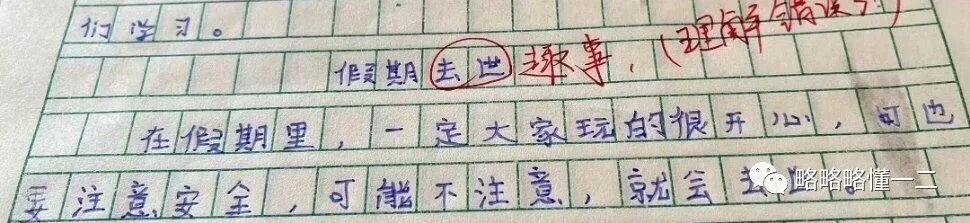 们学习。
假期去世趣事,(理解错误!)
在假期里,一定大家玩的很开心,可也
要注意安全,可能不注意,就会去
略略略懂一二